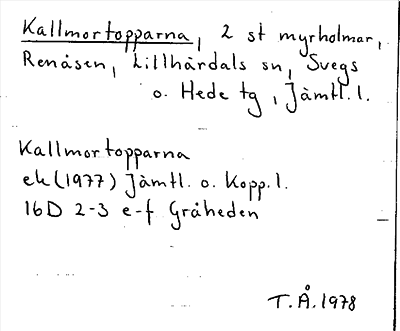 Kallmortopparna, 2 st myrholmar,
Renåsen, Lillhärdals sn, Svegs
o. Hede tg, Jämtl. l.
Kallmortopparna
ek (1977) Jämtl. o. Kopp. l.
16D 2-3 e-f Gråheden
T.Å. 1978